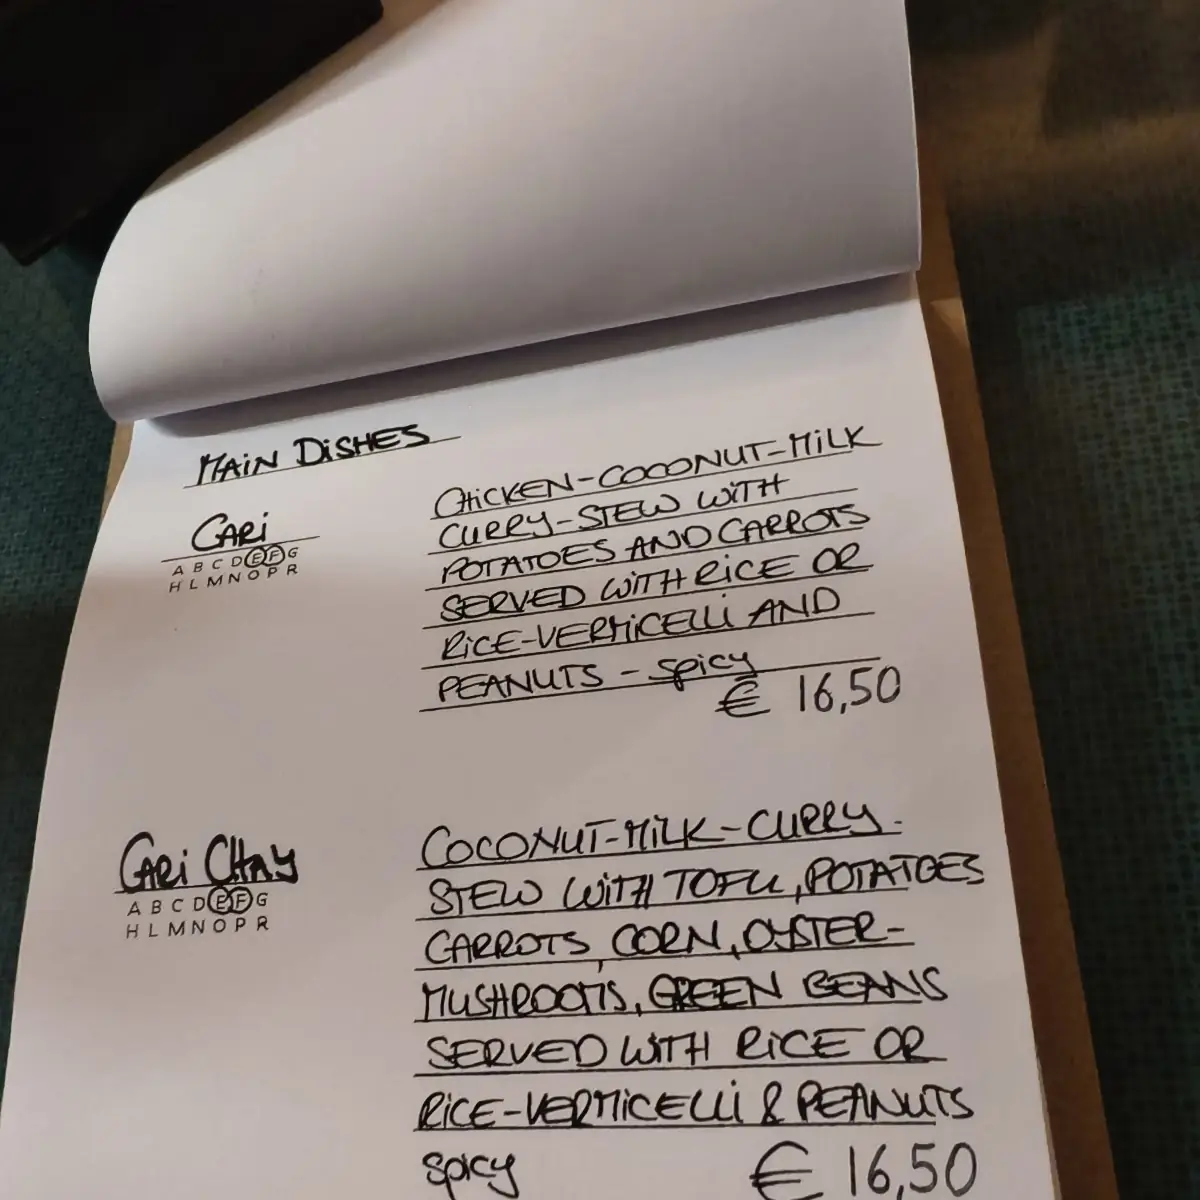 MAIN DISHES
CARI
A B C D E F G
H L M N O P R
CHICKEN-COCONUT-MILK
CURRY-STEW WITH
POTATOES AND CARROTS
SERVED WITH RICE OR
RICE-VERMICELLI AND
PEANUTS - SPICY
€ 16,50
CARI CHAY
A B C D E F G
H L M N O P R
COCONUT-MILK-CURRY-
STEW WITH TOFU, POTATOES
CARROTS, CORN, OYSTER-
MUSHROOMS, GREEN BEANS
SERVED WITH RICE OR
RICE-VERMICELLI & PEANUTS
SPICY
€ 16,50